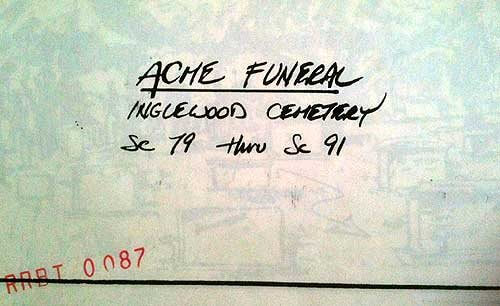 ACME FUNERAL
INGLEWOOD CEMETERY
Sc 79 thru Sc 91
0087